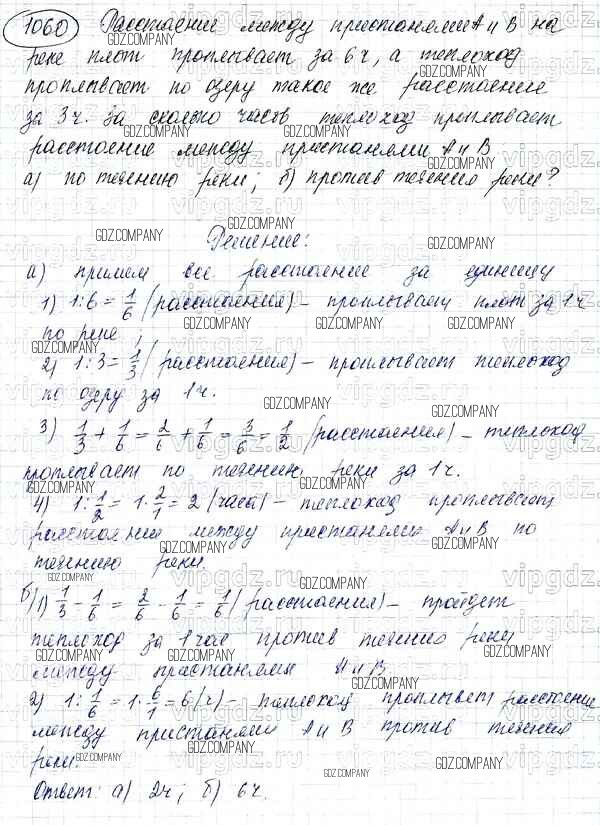 1060 Расстояние между пристанями А и В на
реке плот проплывает за 6 ч, а теплоход
проплывает по озеру такое же расстояние
за 3 ч. За сколько часов теплоход проплывает
расстояние между пристанями А и В
а) по течению реки; б) против течения реки?
Решение:
а) примем все расстояние за единицу
1) 1:6 = 1/6 (расстояния) – проплывает плот за 1 ч
по реке;
2) 1:3 = 1/3 (расстояния) – проплывает теплоход
по озеру за 1 ч.
3) 1/3 + 1/6 = 2/6 + 1/6 = 3/6 = 1/2 (расстояния) – теплоход
проплывает по течению реки за 1 ч.
4) 1: 1/2 = 1 · 2/1 = 2 (часа) – теплоход проплывает
расстояние между пристанями А и В по
течению реки.
б) 1) 1/3 - 1/6 = 2/6 - 1/6 = 1/6 (расстояния) – пройдет
теплоход за 1 час против течения реки
между пристанями А и В
2) 1: 1/6 = 1 · 6/1 = 6 (ч) – теплоход проплывет расстояние
между пристанями А и В против течения
реки.
Ответ: а) 2ч; б) 6ч.
GDZ.COMPANY
vipgdz.ru